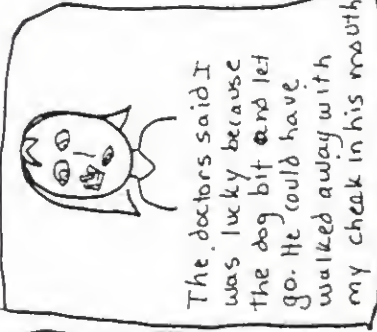 The doctors said I
was lucky because
the dog bit and let
go. He could have
walked away with
my cheek in his mouth